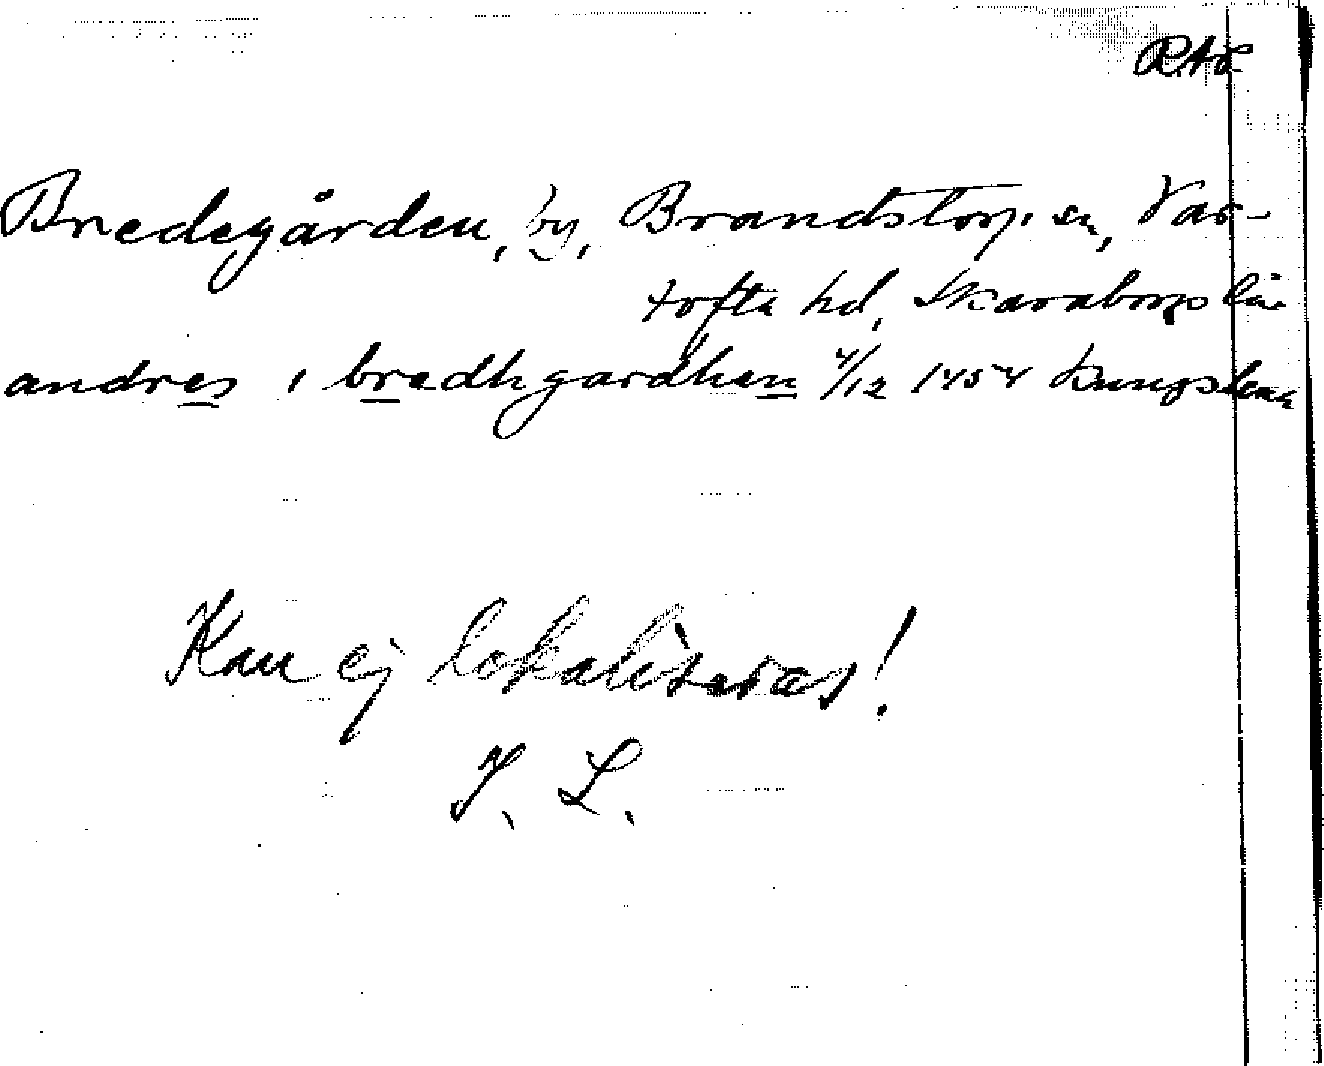 RAÖ
Bredegården, by, Brandstorps sn, Var-
tofta hd, Skaraborgs län
andres i bredhgardhen 4/12 1454 Kungslena
Kan ej lokaliseras!
J. L.